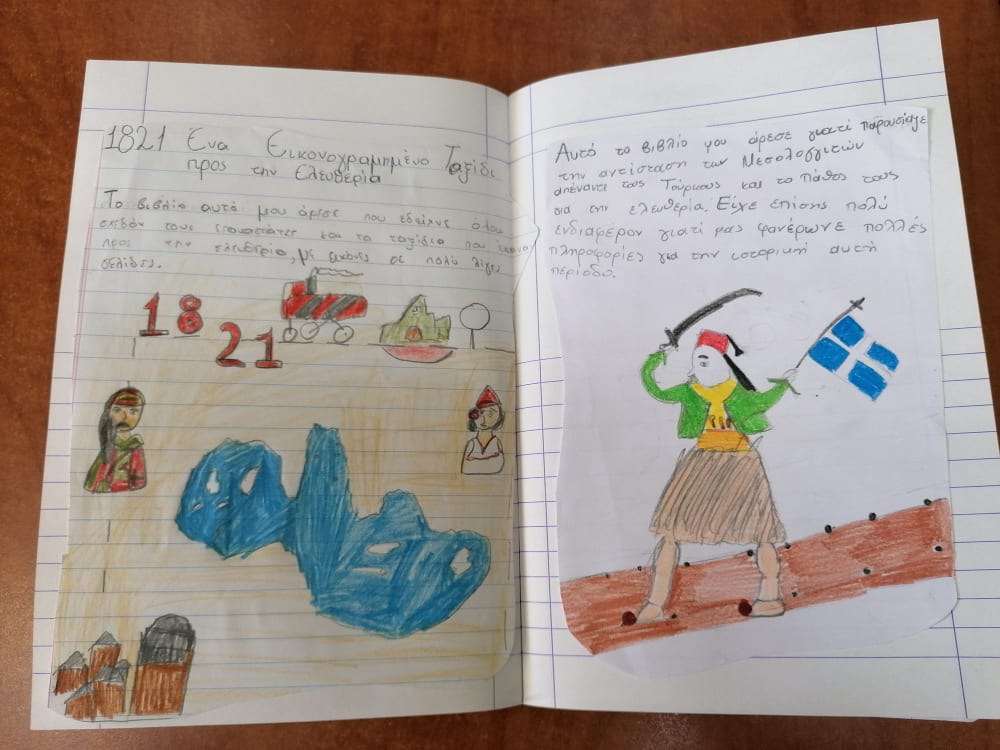 1821 Ένα Εικονογραμμημένο Ταξίδι
προς την Ελευθερία
Το βιβλίο αυτό μου άρεσε που έδειχνε όλου
σχεδόν τους επαναστάτες και τα ταξίδια που έκανα
προς την ελευθερία, με εικόνες σε πολύ λίγες
σελίδες.
18
21
Αυτό το βιβλίο μου άρεσε γιατί παρουσίαζε
την αντίσταση των Μεσολογγιτών
απέναντι τους Τούρκους και το πάθος τους
για την ελευθερία. Είχε επίσης πολύ
ενδιαφέρον γιατί μας φανέρωνε πολλές
πληροφορίες για την ιστορική αυτή
περίοδο.